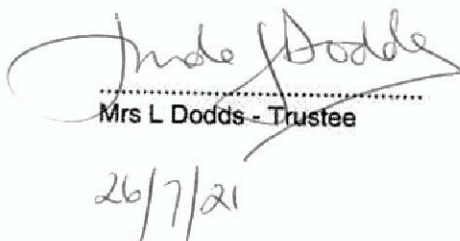 Dodds
Mrs L Dodds - Trustee
26/7/21